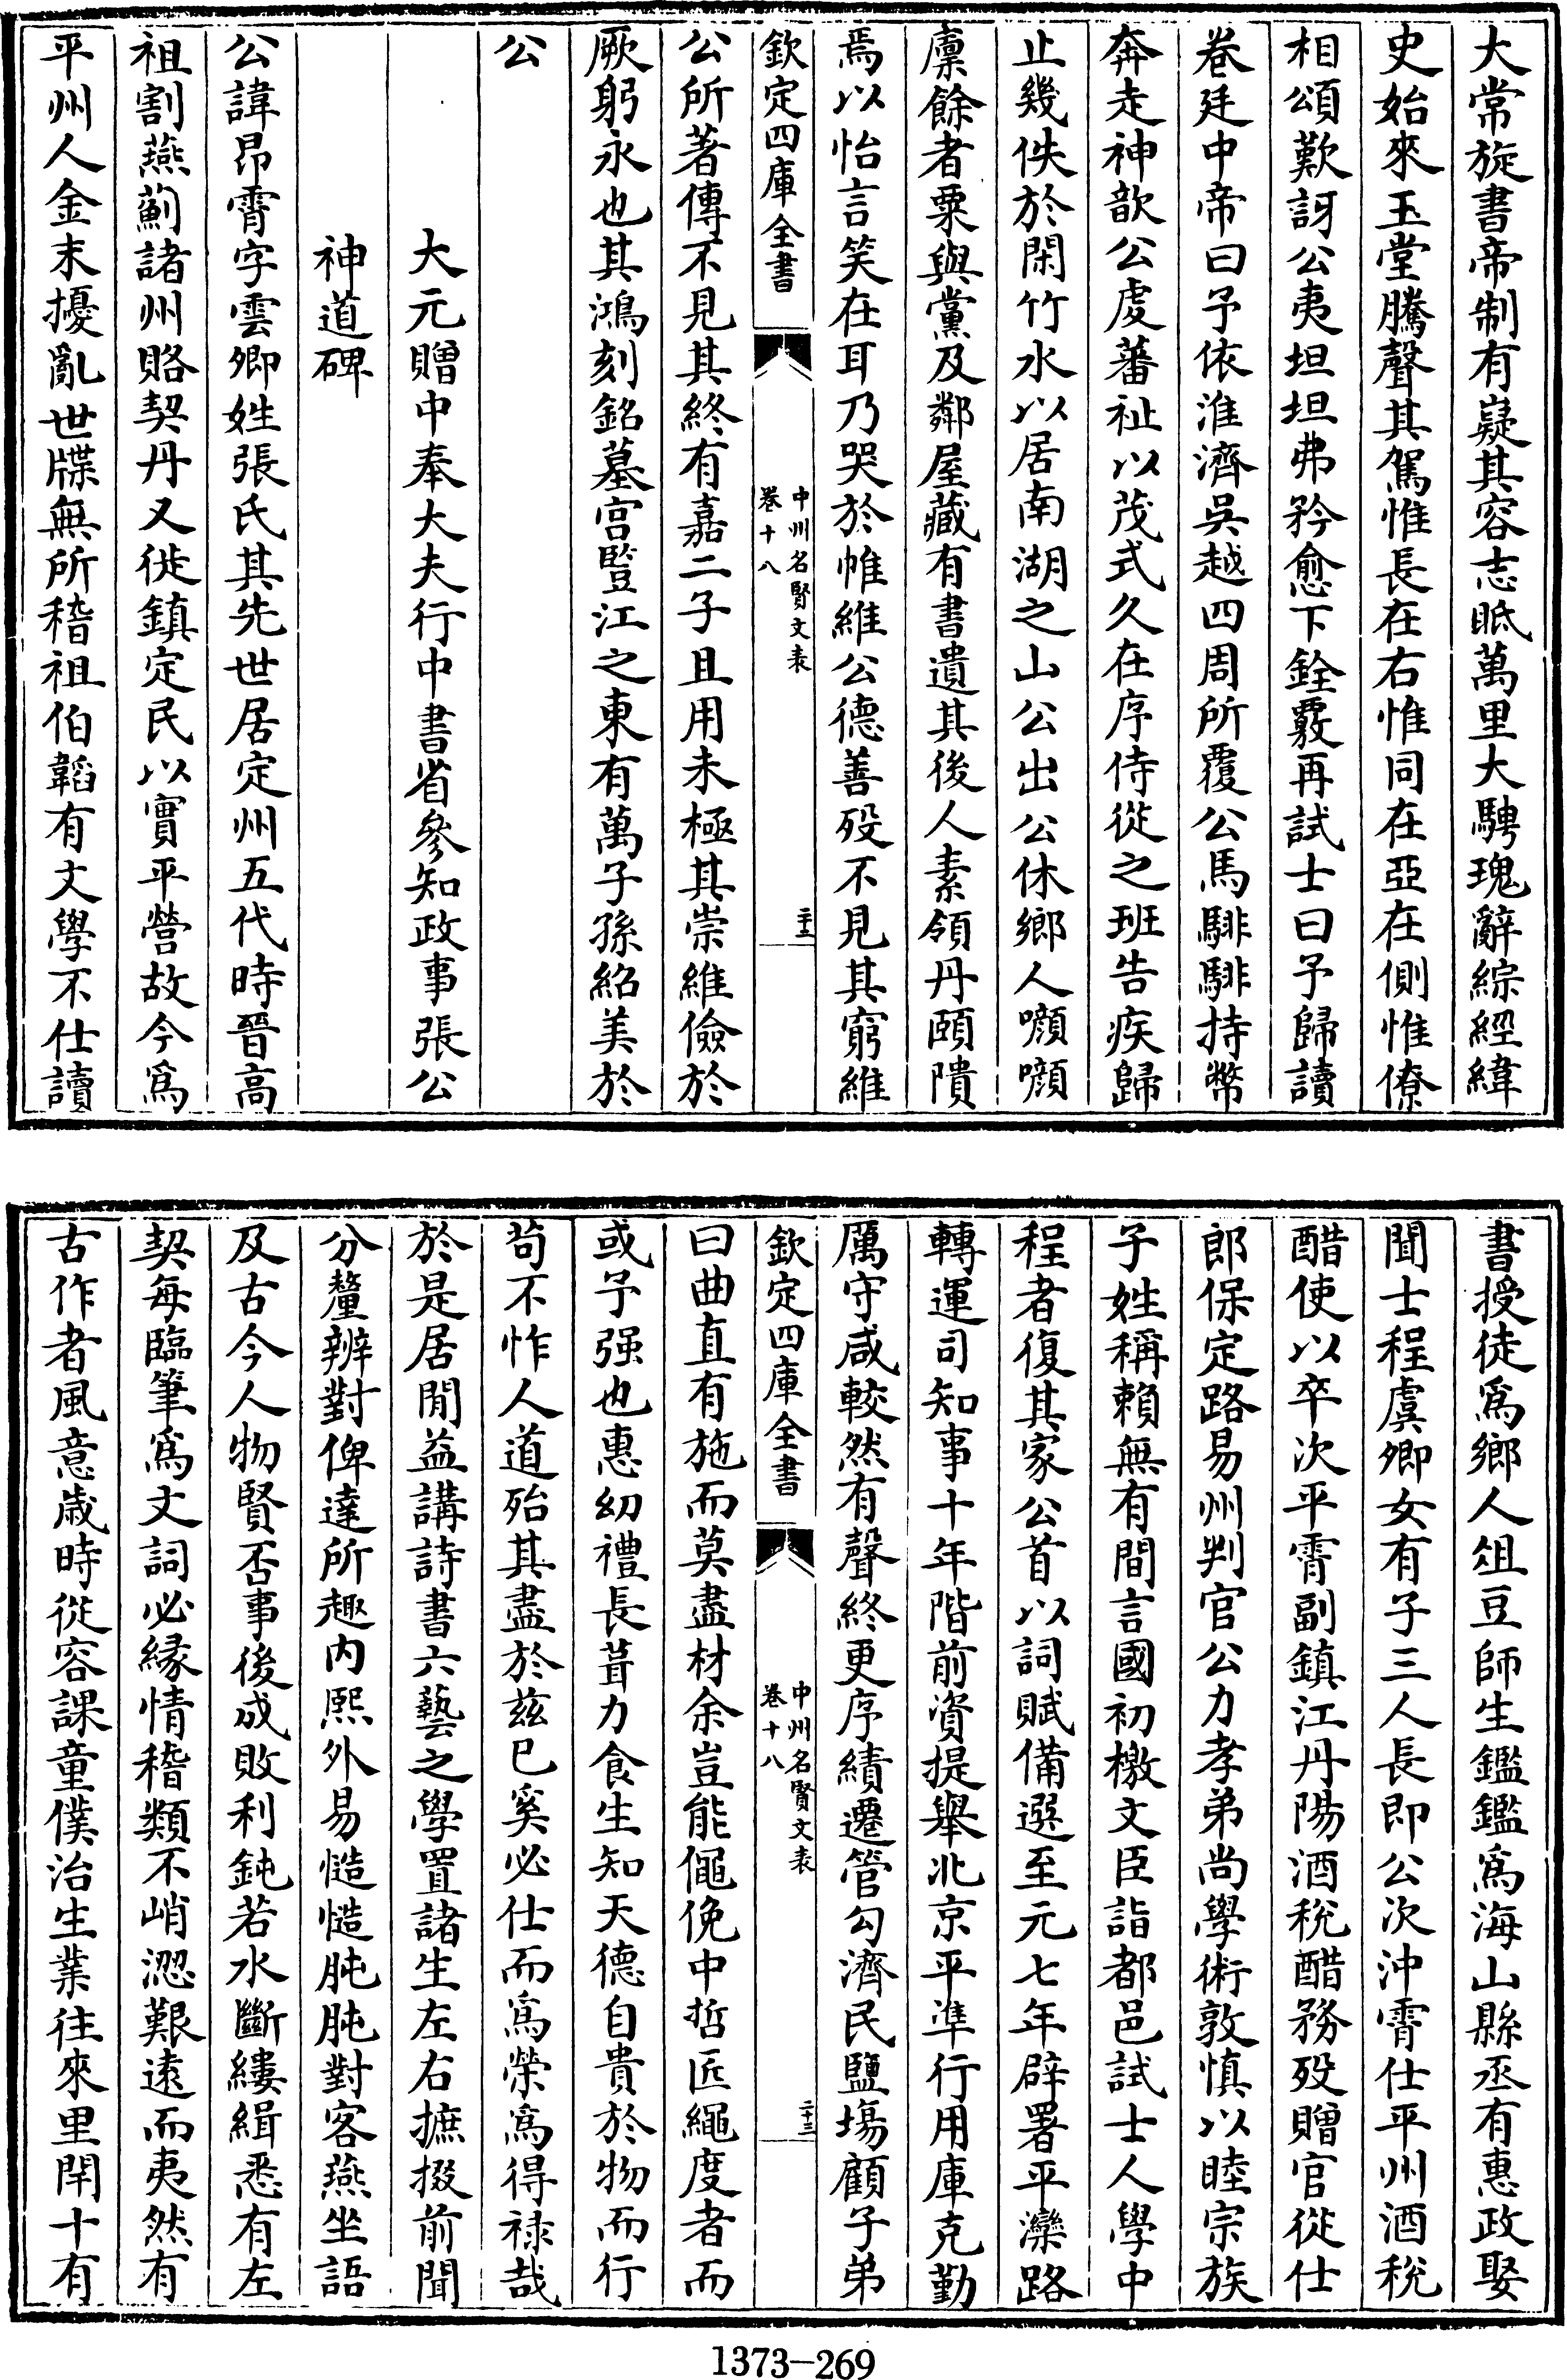 大常旋書帝制有嶷其容志眡萬里大騁瑰辭綜經緯
史始來玉堂騰聲其駕惟長在右惟同在亞在側惟僚
相頌歎訝公夷坦坦弗矜愈下銓覈再試士曰予歸讀
卷廷中帝曰予依淮濟吳越四周所覆公馬騑騑持幣
奔走神歆公虔蕃祉以茂式久在序侍從之班告疾歸
止幾佚於閑竹水以居南湖之山公出公休鄉人嚬嚬
廪餘者粟與黨及鄰屋藏有書遺其後人素領丹頤隤
焉以怡言笑在耳乃哭於帷維公德善歿不見其窮維
欽定四庫全書
中州名賢文表
卷十八
二十三
公所著傳不見其終有嘉二子且用未極其崇維儉於
厥躬永也其鴻刻銘墓宫豎江之東有萬子孫紹美於
公
大元贈中奉大夫行中書省參知政事張公
神道碑
公諱昂霄字雲卿姓張氏其先世居定州五代時晉高
祖割燕薊諸州賂契丹又徙鎮定民以實平營故今爲
平州人金末擾亂世牒無所稽祖伯韜有文學不仕讀
書授徒爲鄉人俎豆師生鑑鑑爲海山縣丞有惠政娶
聞士程虞卿女有子三人長即公次沖霄仕平州酒稅
醋使以卒次平霄副鎮江丹陽酒稅醋務歿贈官從仕
郎保定路易州判官公力孝弟尚學術敦慎以睦宗族
子姓稱賴無有間言國初檄文臣詣都邑試士人學中
程者復其家公首以詞賦備選至元七年辟署平灤路
轉運司知事十年階前資提舉北京平準行用庫克勤
厲守咸較然有聲終更序績遷管勾濟民鹽場顧子弟
欽定四庫全書
中州名賢文表
卷十八
二十三
曰曲直有施而莫盡材余豈能僶俛中哲匠繩度者而
或予强也惠幼禮長葺力食生知天德自貴於物而行
茍不怍人道殆其盡於兹已奚必仕而爲榮爲得禄哉
於是居閒益講詩書六藝之學置諸生左右摭掇前聞
分釐辨對俾達所趣内熙外易慥慥肫肫對客燕坐語
及古今人物賢否事後成敗利鈍若水斷縷緝悉有左
契每臨筆爲文詞必緣情稽類不峭澀艱遠而夷然有
古作者風意歲時從容課童僕治生業往來里閈十有
1373—269